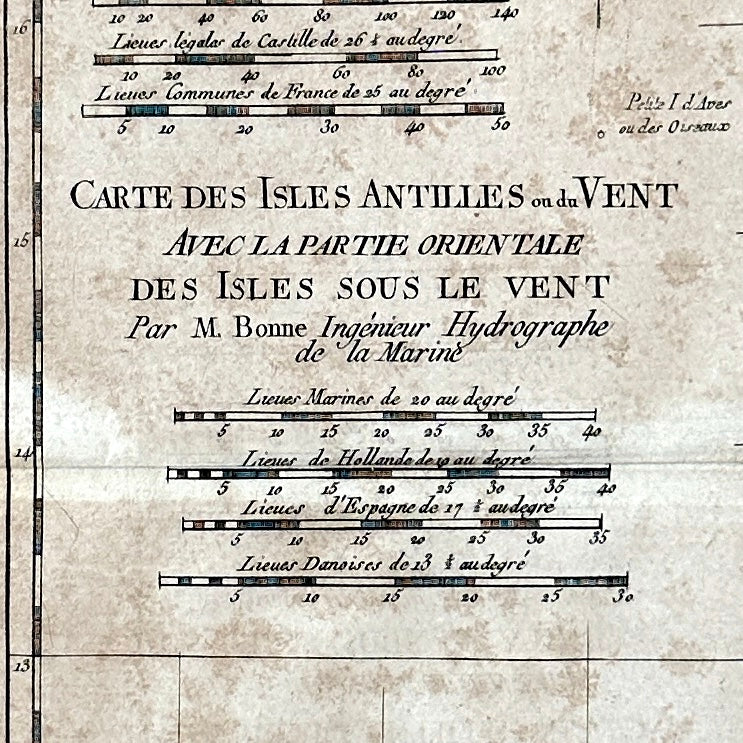 16
10 20 40 60 80 100 120 140
Lieues légales de Castille de 26 ½ au degré
10 20 40 60 80 100
Lieues Communes de France de 25 au degré
5 10 20 30 40 50
Petite I d'Aves
ou des Oiseaux
CARTE DES ISLES ANTILLES ou du VENT
15
AVEC LA PARTIE ORIENTALE
DES ISLES SOUS LE VENT
Par M. Bonne Ingénieur Hydrographe
de la Marine
Lieues Marines de 20 au degré
5 10 15 20 25 30 35 40
14
Lieues de Hollande de 19 au degré
5 10 15 20 25 30 35 40
Lieues d'Espagne de 17 ½ au degré
5 10 15 20 25 30 35
Lieues Danoises de 13 au degré
5 10 15 20 25 30
13